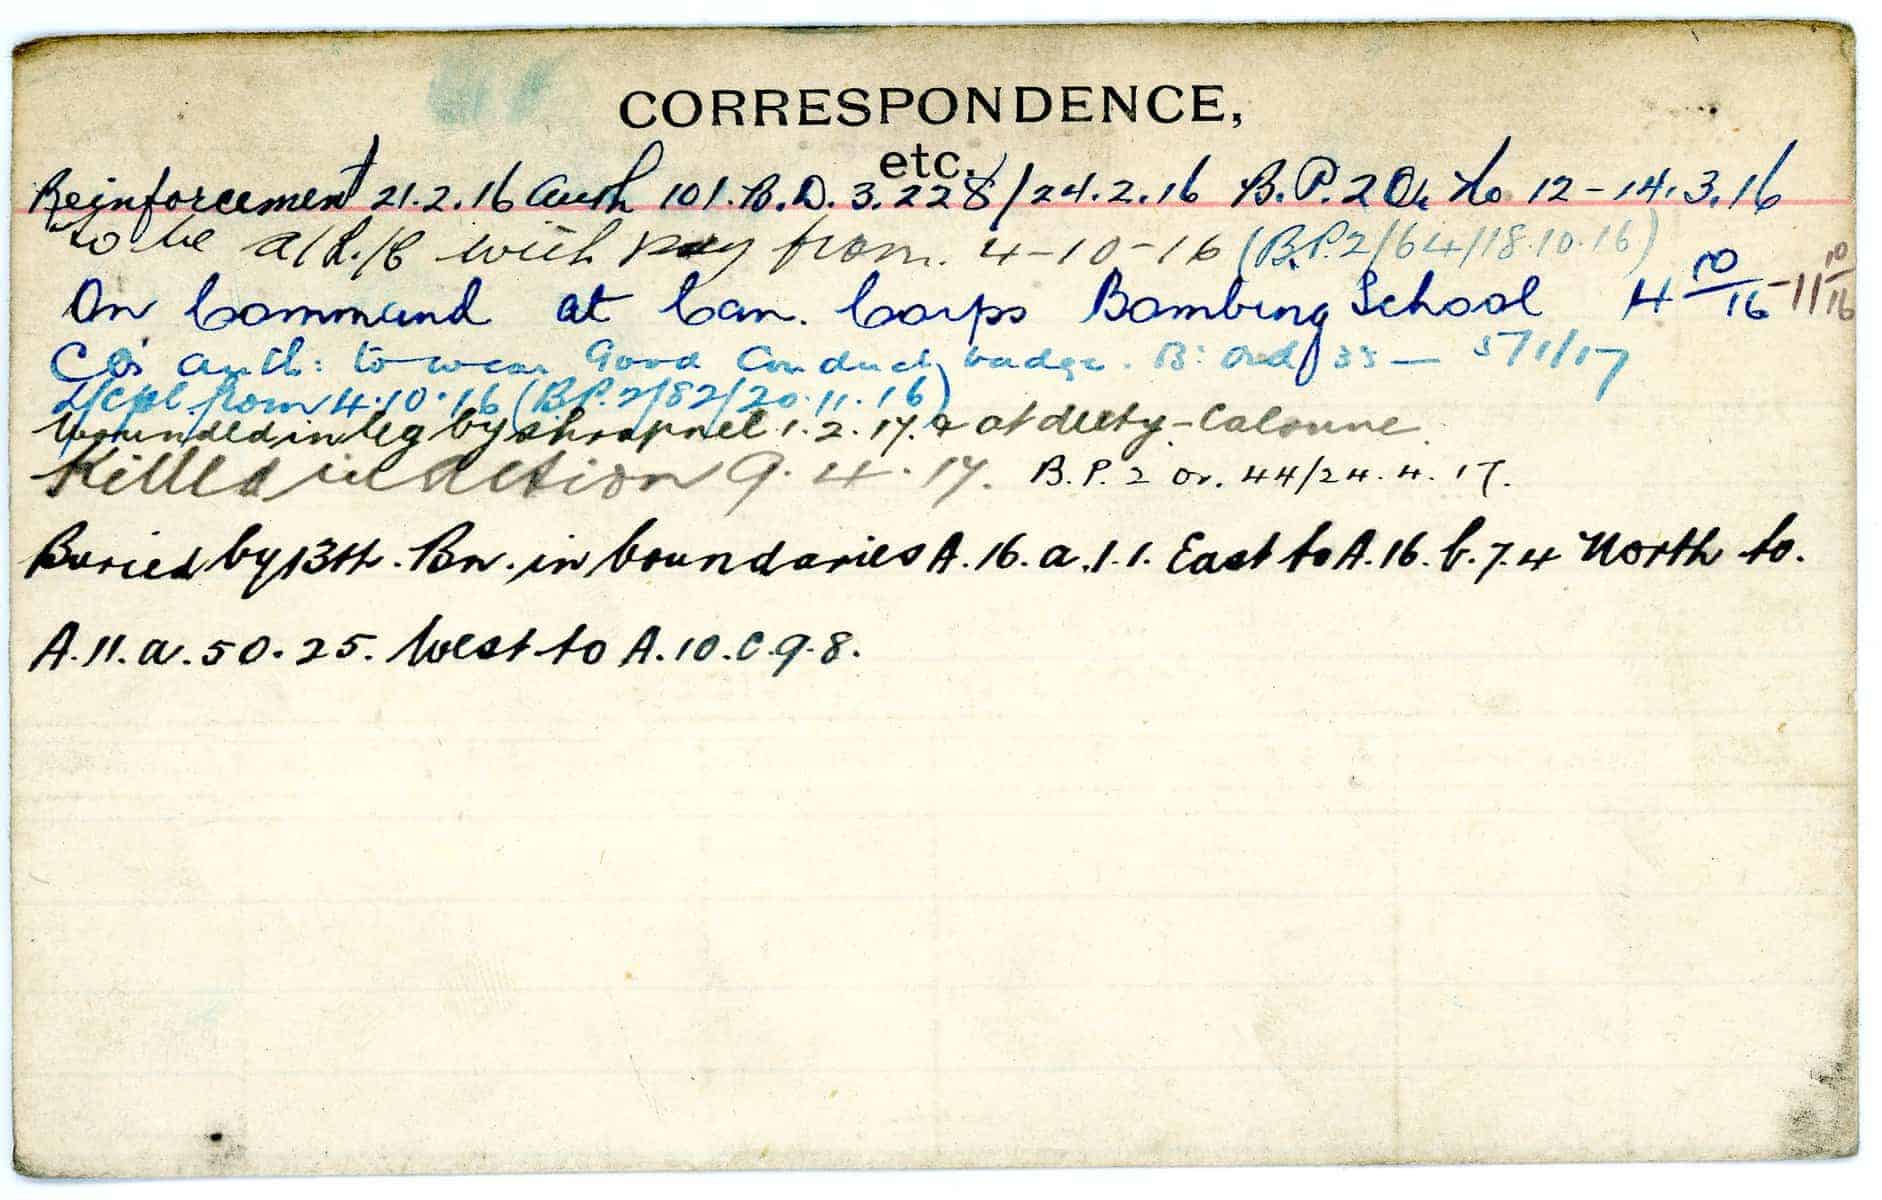 CORRESPONDENCE,
etc.
Reinforcement 21.2.16 Auth 101.B.D.3.228/24.2.16 B.P.2 Or. No 12-14.3.16
to be a/L./C with pay from. 4-10-16 (B.P.2/64/18.10.16)
On Command at Can. Corps Bombing School 4 10/16 - 11 10/16
CO's auth: to wear Good Conduct badge. B: Ord 35 — 5/1/17
L/Cpl from 4.10.16 (B.P.2/82/20.11.16)
Wounded in leg by shrapnel 1.2.17. & at duty - Calonne.
Killed in action 9.4.17. B.P.2 Or. 44/24.4.17.
Buried by 13th. Bn. in boundaries A.16.a.1.1. East to A.16.b.7.4 North to.
A.11.a.50.25. West to A.10.C.9.8.